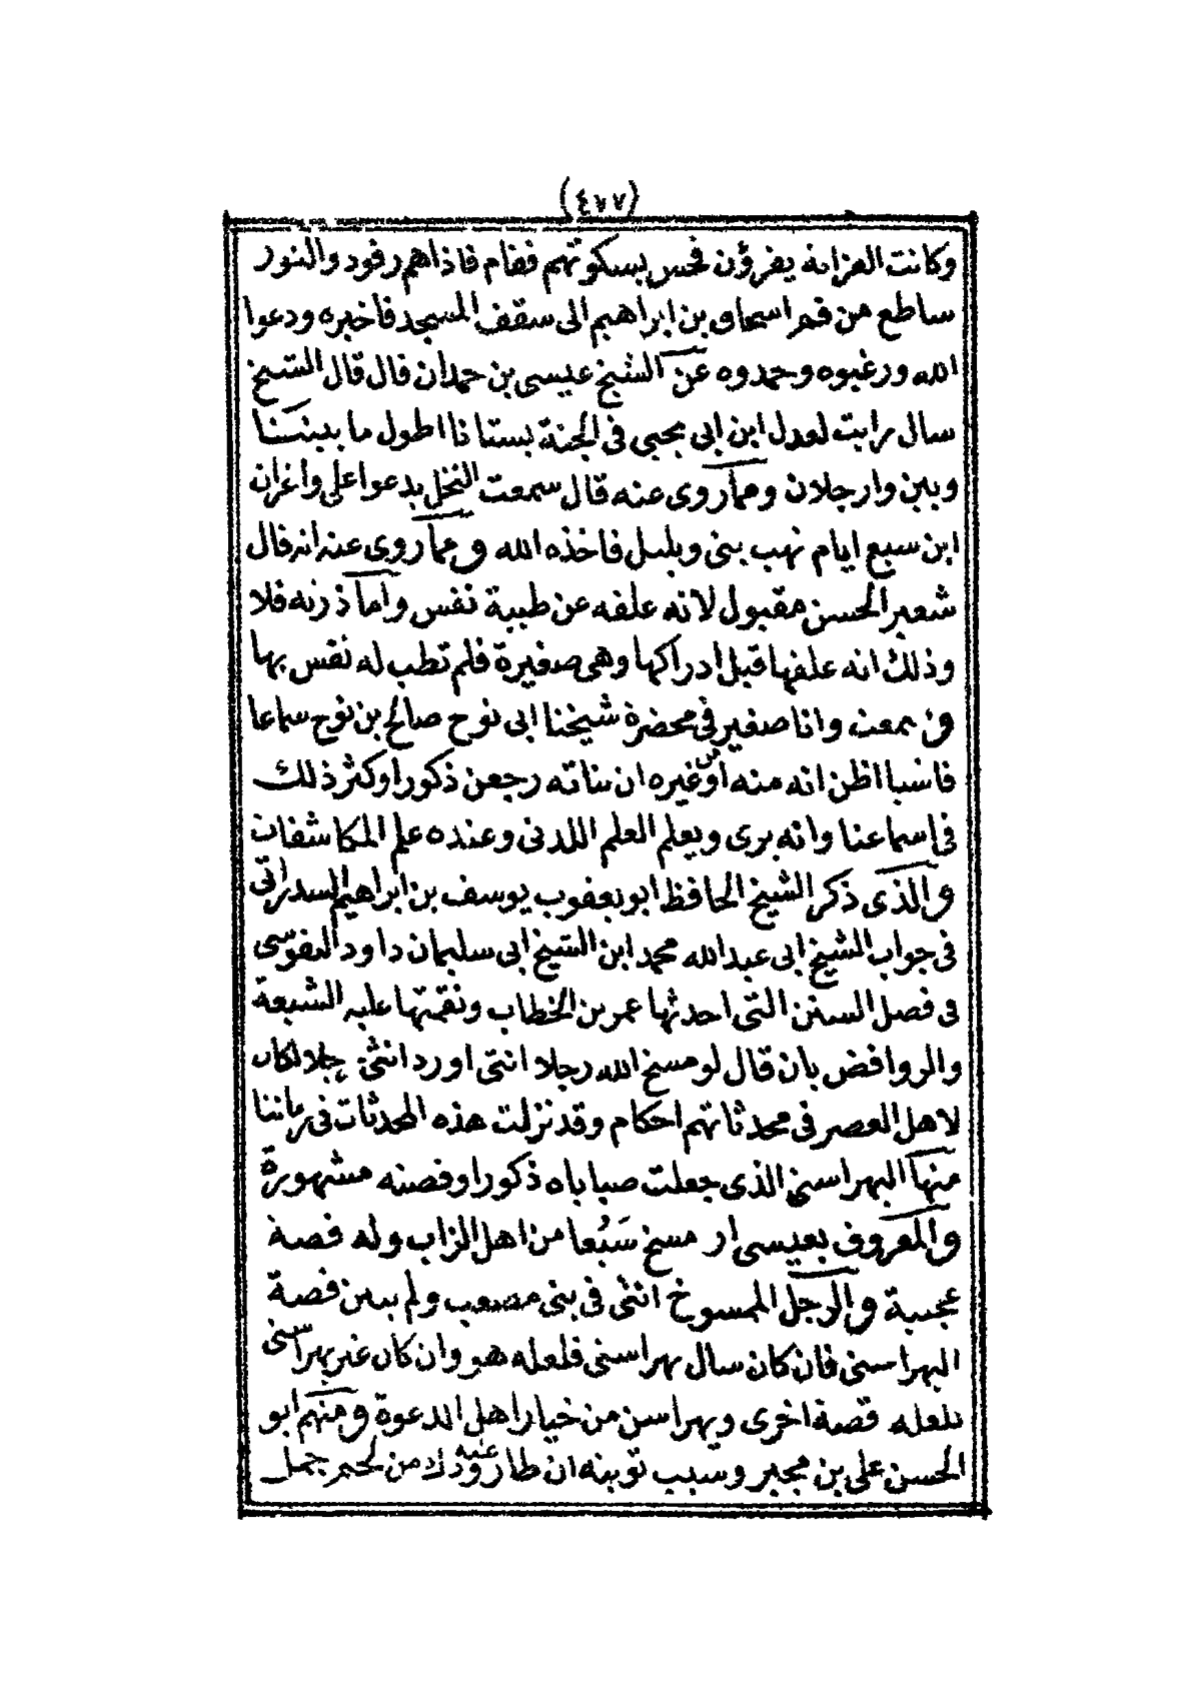 (٤٧٧)
وكانت العزابة يقرؤن فحس بسكوتهم فقام فاذاهم رقود والنور
ساطع من فم اسحاق بن ابراهيم الى سقف المسجد فاخبره ودعوا
الله ورغبوه وحمدوه عن الشيخ عيسى بن حمدان قال قال الشيخ
سال رايت لعدل ابن ابى يحيى فى الجنة بستانا اطول ما بيننا
وبين وارجلان ومما روى عنه قال سمعت النخل يدعوا على واغزان
ابن سبع ايام نهب بنى ويليل فاخذه الله ومما روى عنه انه قال
شعير الحسن مقبول لانه علفه عن طيبة نفس واما ذرته فلا
وذلك انه علفها قبل ادراكها وهى صغيرة فلم تطب له نفس بها
وسمعت وانا صغير فى محضرة شيخنا ابى نوح صالح بن نوح سماعا
فاشيا اظن انه منه او من غيره ان بناته رجعن ذكورا وكثر ذلك
فى اسماعنا وانه يرى ويعلم العلم اللدنى وعنده علم المكاشفات
والذى ذكر الشيخ الحافظ ابو يعقوب يوسف بن ابراهيم السدراتى
فى جواب الشيخ ابى عبد الله محمد ابن الشيخ ابى سليمان داود النفوسى
فى فصل السنن التى احدثها عمر بن الخطاب ونقمتها عليه الشيعة
والروافض بان قال لو مسخ الله رجلا انثى او رد انثى رجلا لكان
لاهل العصر فى محدثاتهم احكام وقد نزلت هذه المحدثات فى زماننا
منها اليهراسنى الذى جعلت صباياه ذكورا وقصته مشهورة
والمعروف بعيسى ار مسخ سَبُعا من اهل الزاب وله قصة
عجيبة والرجل الممسوخ انثى فى بنى مصعب ولم يبين قصة
اليهراسنى فان كان سال يهراسنى فلعله هو وان كان غير يهراسنى
فلعله قصة اخرى ويهراسن من خيار اهل الدعوة ومنهم ابو
الحسن على بن مجبر وسبب توبته ان طار عنيه ودك من لحم جمل